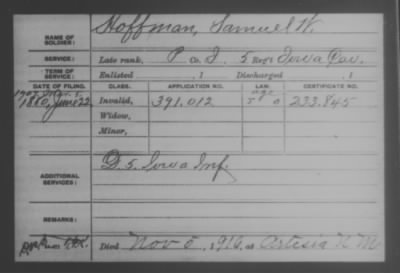 Hoffman, Samuel W.
NAME OF SOLDIER:
SERVICE: Late rank, P Co. I, 5 Reg't Iowa Cav.
TERM OF SERVICE: Enlisted , 1 Discharged , 1
DATE OF FILING. CLASS. APPLICATION NO. LAW. CERTIFICATE NO.
1880, June 22 Invalid, 391.012 233.845
Widow,
Minor,
ADDITIONAL SERVICES: D. 5. Iowa Inf.
REMARKS:
Died Nov 5, 1916, at Artesia N M